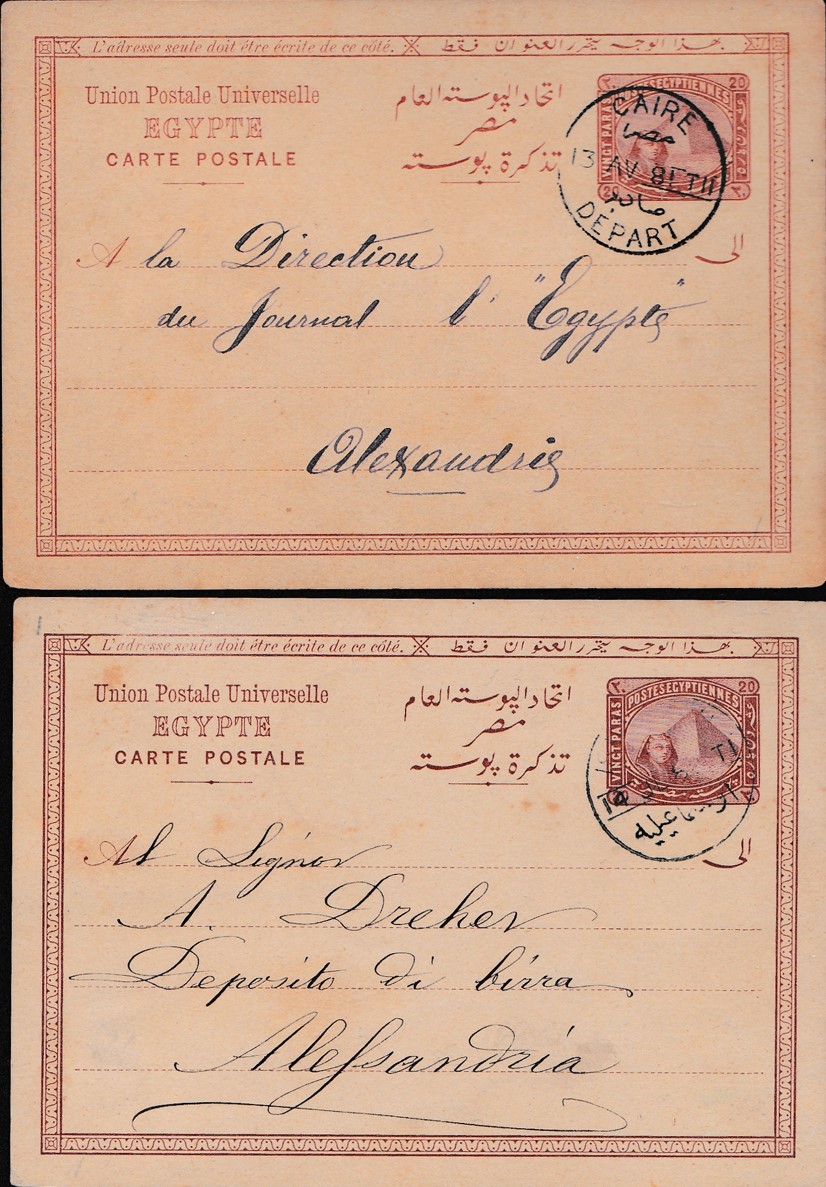 L'adresse seule doit être écrite de ce côté.
بهذا الوجه يتحرر العنوان فقط
Union Postale Universelle
EGYPTE
CARTE POSTALE
اتحاد البوسته العام
مصر
تذكرة بوسته
20
POSTES EGYPTIENNES
VINGT PARAS
20
٢٠
CAIRE
مصر
13 AV 81 TII
DEPART
A la Direction
الى
du Journal l' "Egypte"
Alexandrie
L'adresse seule doit être écrite de ce côté.
بهذا الوجه يتحرر العنوان فقط
Union Postale Universelle
EGYPTE
CARTE POSTALE
اتحاد البوسته العام
مصر
تذكرة بوسته
٢٠
POSTES EGYPTIENNES
20
VINGT PARAS
TI
Al Signor
الى
A. Dreher
Deposito di birra
Alessandria